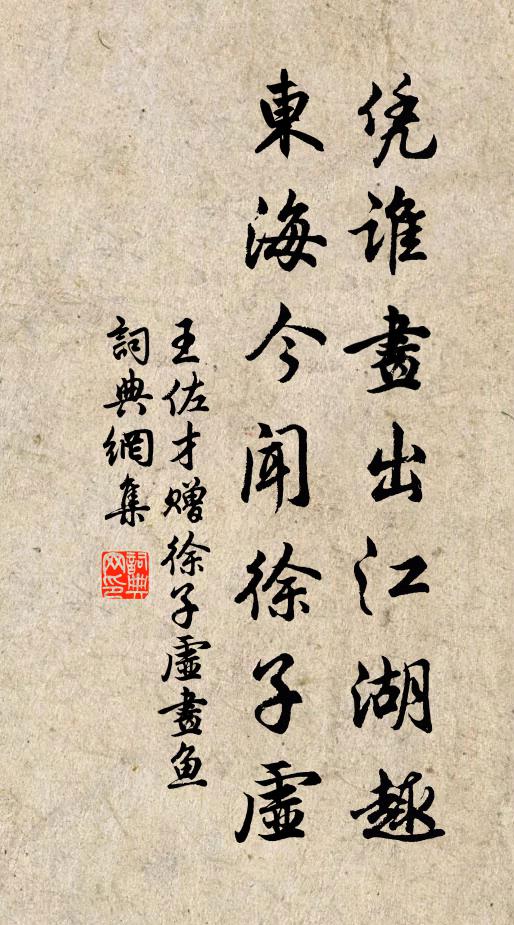 凭谁畫出江湖趣
東海今闻徐子虛
王佐才赠徐子虛畫鱼
詞典網集
詞典网印